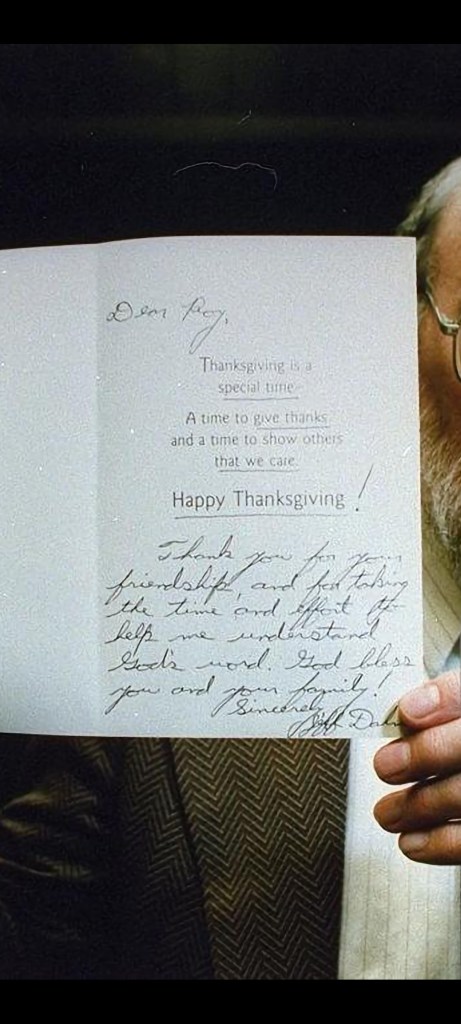 Dear Roy,
Thanksgiving is a
special time
A time to give thanks
and a time to show others
that we care.
Happy Thanksgiving!
Thank you for your
friendship, and for taking
the time and effort to
help me understand
God's word. God bless
you and your family!
Sincerely,
Jeff Dahm